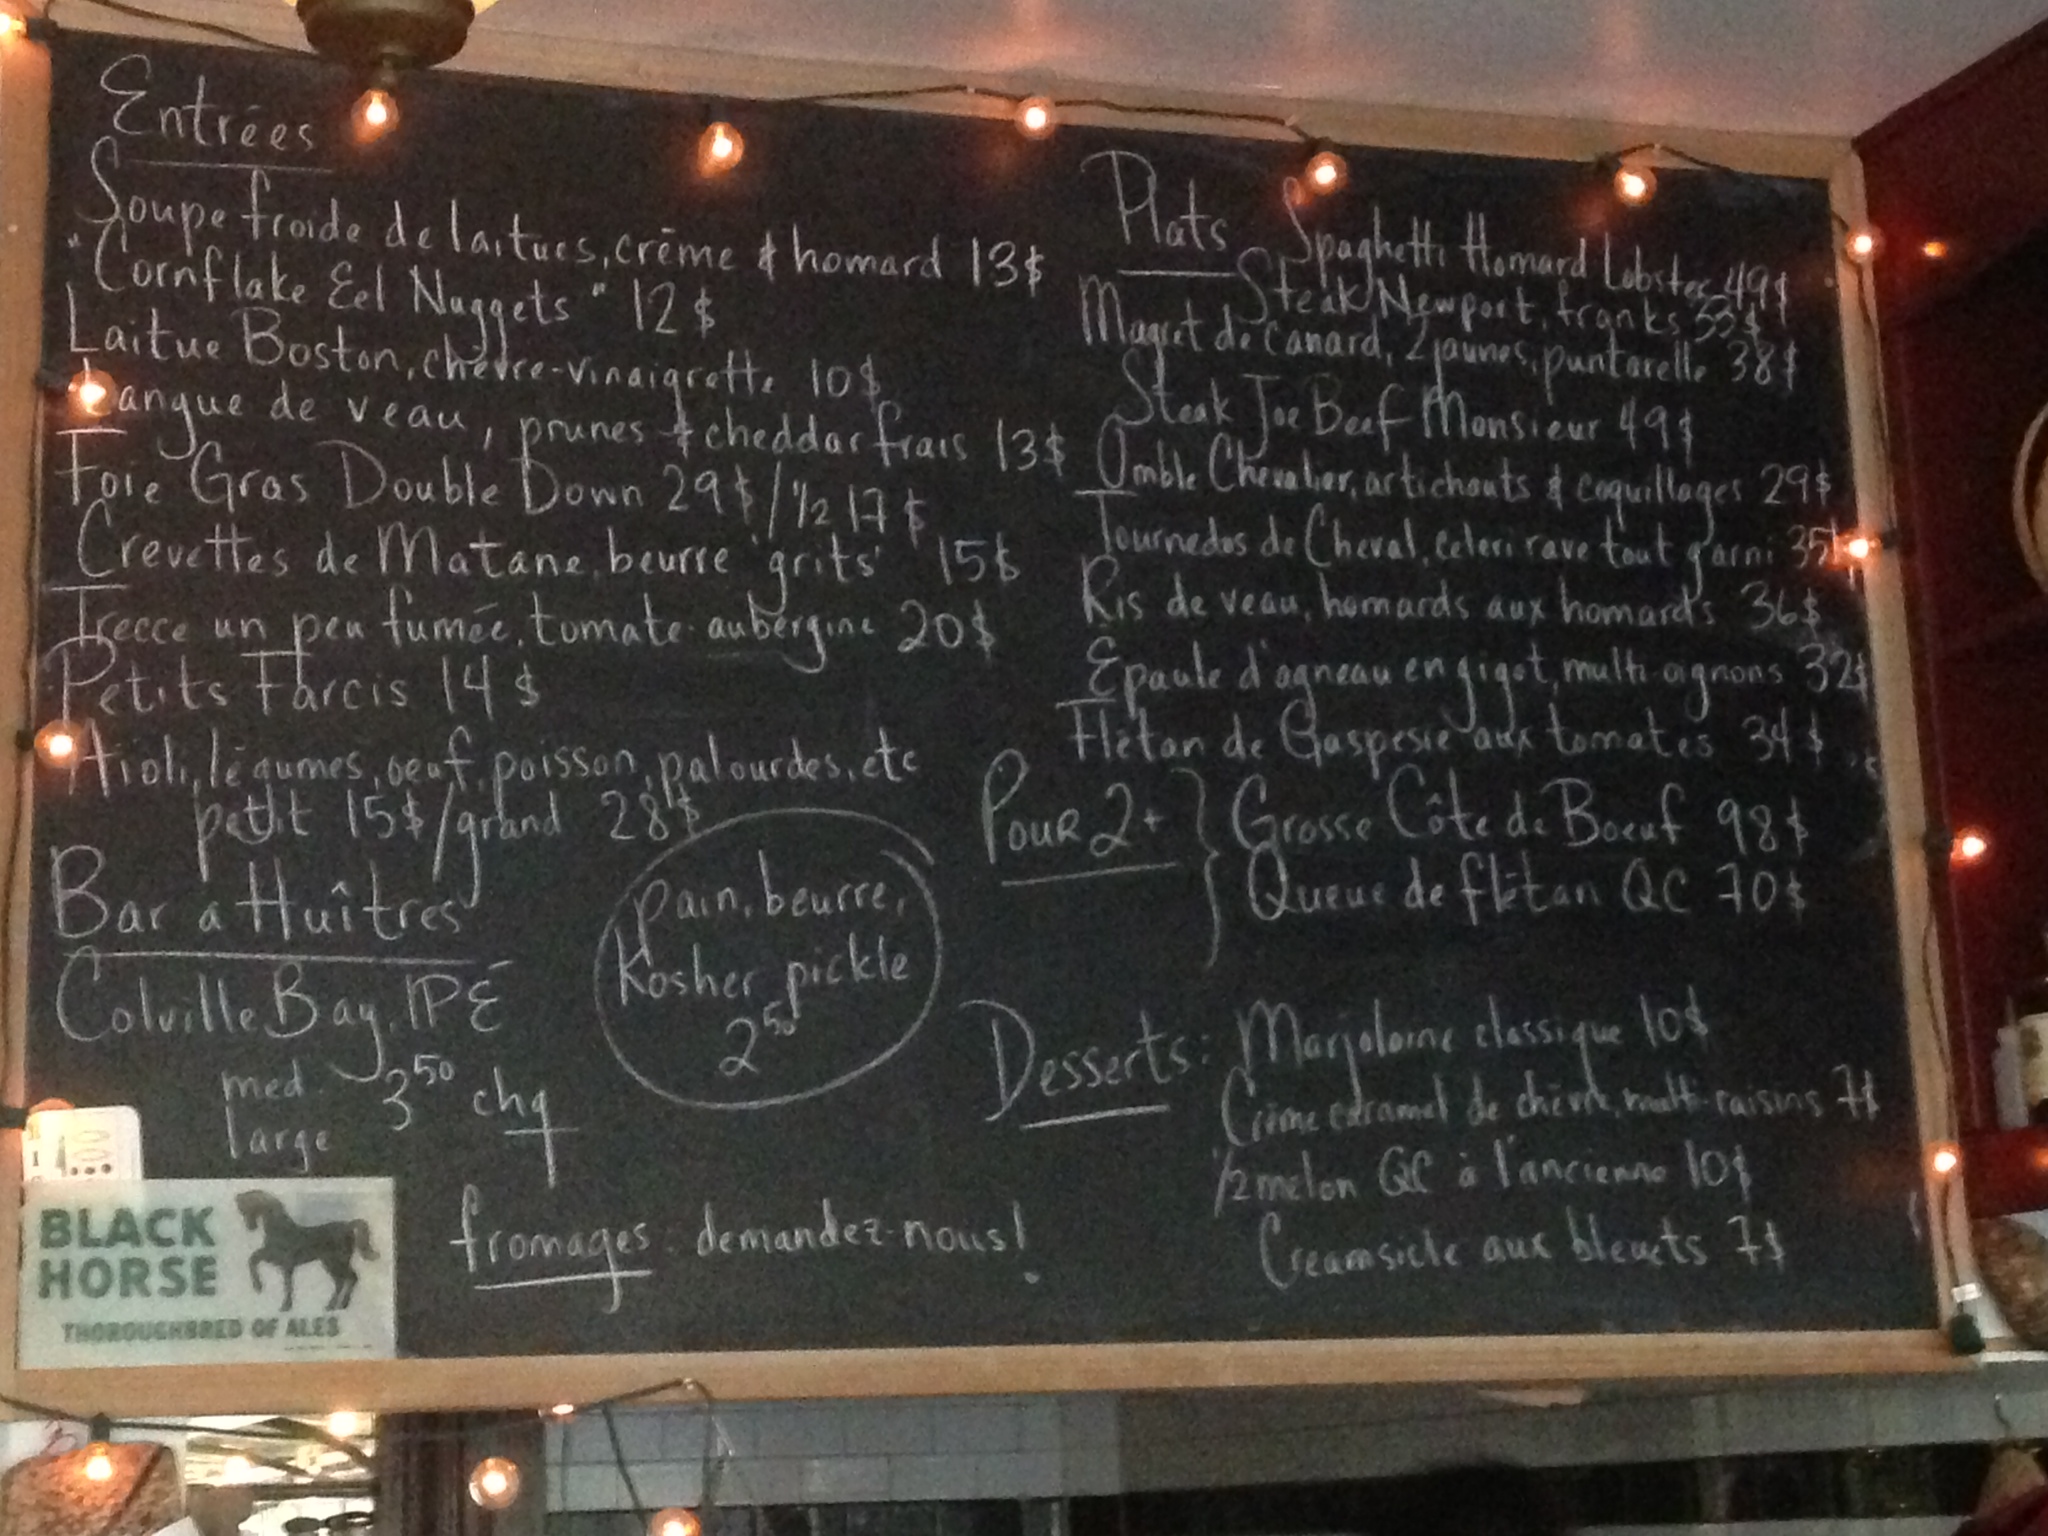 Entrées
Soupe froide de laitues, crème & homard 13$
"Cornflake Eel Nuggets" 12$
Laitue Boston, chèvre-vinaigrette 10$
Langue de veau, prunes & cheddar frais 13$
Foie Gras Double Down 29$/½ 17$
Crevettes de Matane, beurre 'grits' 15$
Trecce un peu fumée, tomate-aubergine 20$
Petits Farcis 14$
Aïoli, légumes, oeuf, poisson, palourdes, etc
petit 15$/grand 28$
Bar a Huîtres
Colville Bay, IPÉ
med.
large
3⁵⁰ chq
pain, beurre,
Kosher pickle
2⁵⁰
fromages: demandez-nous!
BLACK
HORSE
THOROUGHBRED OF ALES
Plats Spaghetti Homard Lobster 49$
Steak Newport, franks 33$
Magret de canard, 2 jaunes, puntarelle 38$
Steak Joe Beef Monsieur 49$
Omble Chevalier, artichauts & coquillages 29$
Tournedos de Cheval, celeri rave tout garni 35$
Ris de veau, homards aux homards 36$
Epaule d'agneau en gigot, multi-oignons 32$
Flétan de Gaspesie aux tomates 34$
Pour 2+ } Grosse Côte de Boeuf 98$
Queue de flétan QC 70$
Desserts: Marjolaine classique 10$
Crème caramel de chèvre, multi-raisins 7$
½ melon QC à l'ancienne 10$
Creamsicle aux bleuets 7$